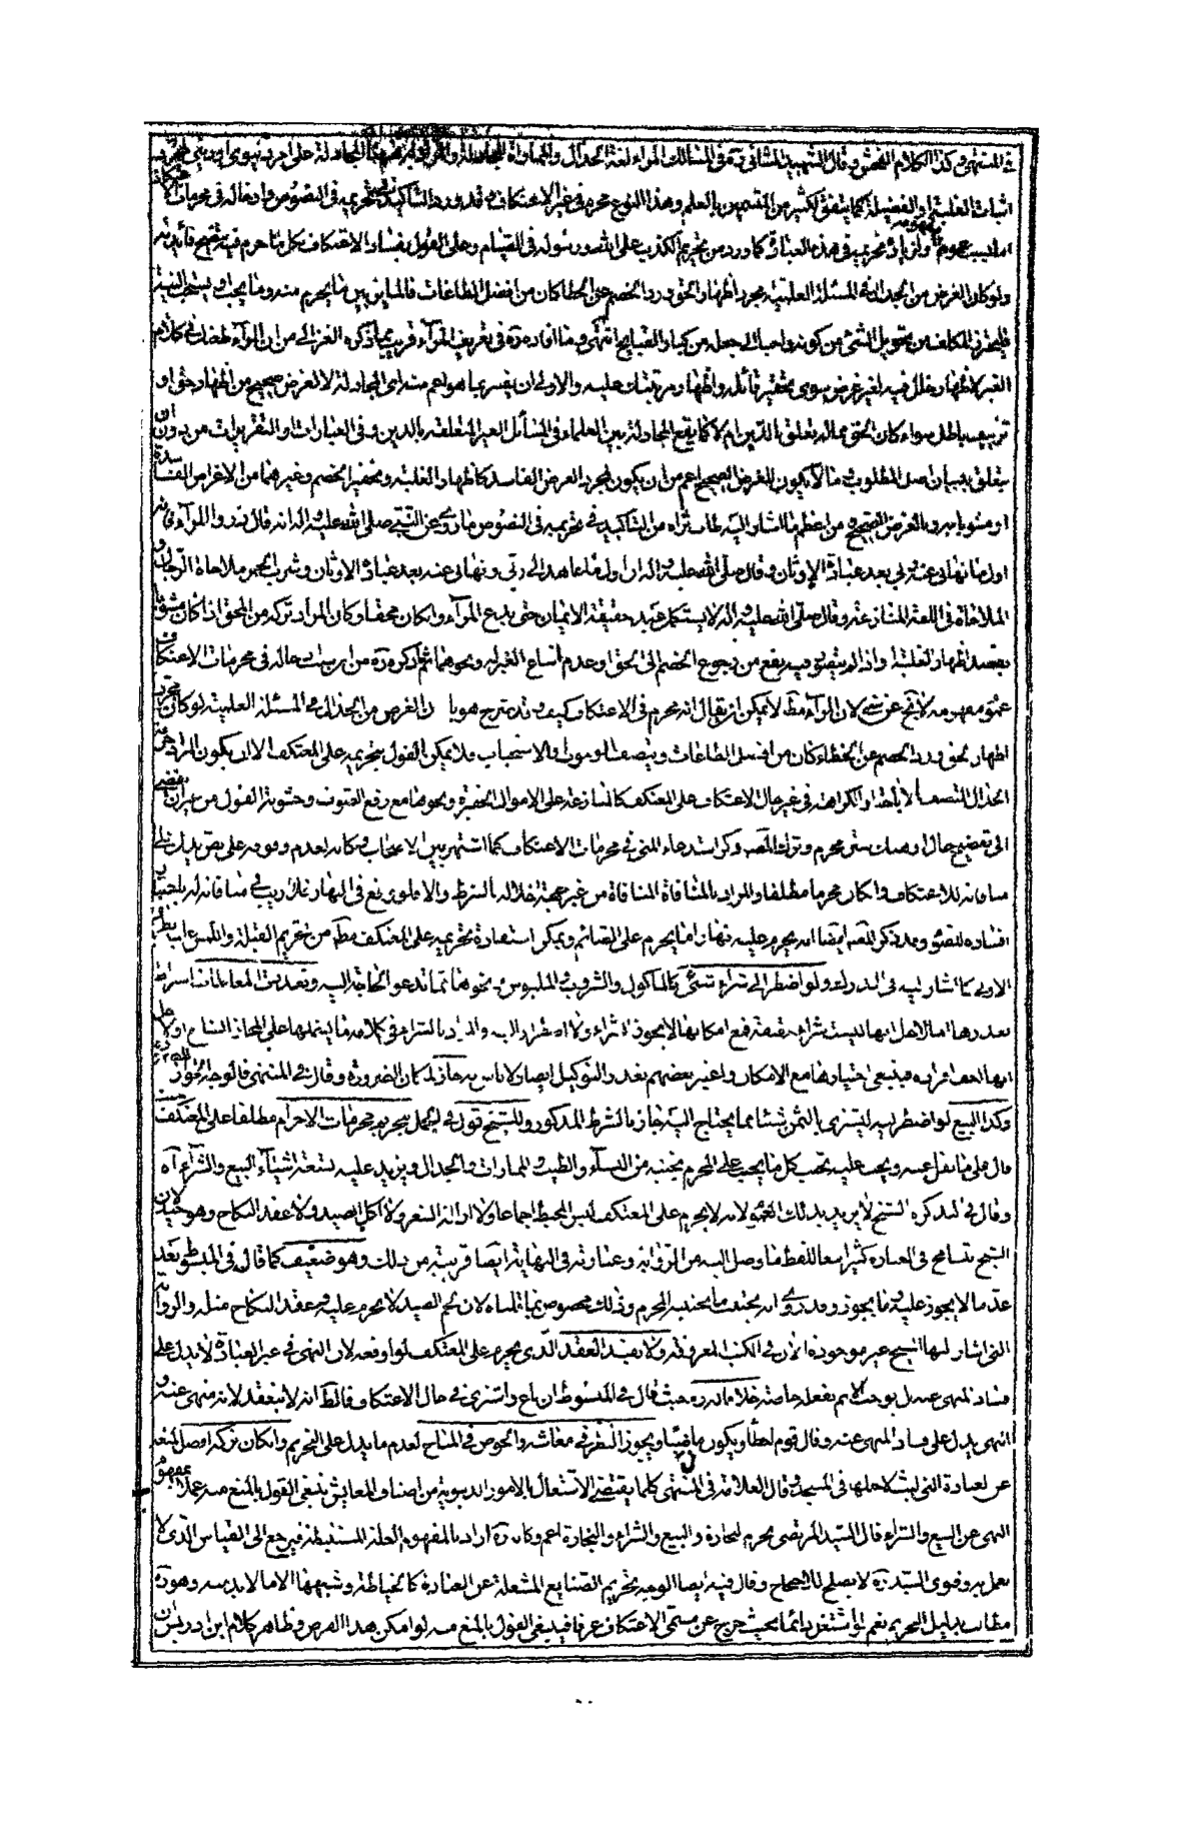 في المنتهى وكذا الكلام المحقق وقال الشهيد الثاني ره في المسالك المراء لغة الجدال والمماراة المجادلة والمراد به هنا المجادلة على امر دنيوي او ديني لمجرد
اثبات الغلبة او الفضيلة كما يتفق لكثير من المتسمين بالعلم وهذا النوع محرم في غير الاعتكاف وقد ورد التاكيد في تحريمه في النصوص وادخاله في محرمات الاعتكاف
اما بسبب عموم مفهومه او لزيادة تحريمه في هذه العبادة كما ورد من تحريم الكذب على الله ورسوله في الصيام وعلى القول بفساد الاعتكاف بكل ما حرم فيه تتضح فائدته
ولو كان الغرض من الجدال في المسئلة العلمية مجرد اظهار الحق ورد الخصم عن الخطا كان من افضل الطاعات فالمايز بين ما يحرم منه وما يجب او يستحب النية
فليحترز المكلف من تحويل الشيء من كونه واجبا الى جعله من كبار القبايح انتهى وما افاده ره في تعريف المراء قريب مما ذكره الغزالي من ان المراء طعن في كلام
الغير لاظهار خلل فيه لغير غرض سوى تحقير قائله واظهار مرتبتك عليه والاولى ان يفسر بما هو اعم منه اي المجادلة لا لغرض صحيح من اظهار حق او
تزييف باطل سواء كان الحق مما له تعلق بالدين ام لا كما يقع المجادلة بين العلماء في المسائل الغير المتعلقة بالدين وفي العبارات والتقريرات من دون ان
يتعلق ببيان اصل المطلوب وما لا يكون للغرض الصحيح اعم من ان يكون لمجرد الغرض الفاسد كاظهار الغلبة وتحقير الخصم وغيرهما من الاغراض الفاسدة
او مشوبا به وبالغرض الصحيح ومن اعظم ما اشار اليه طاب ثراه من التاكيد في تحريمه في النصوص ما روي عن النبي صلى الله عليه واله انه قال ذروا المراء فانه
اول ما نهاني عنه ربي بعد عبادة الاوثان وقال صلى الله عليه واله ان اول ما عاهد الي ربي ونهاني عنه بعد عبادة الاوثان وشرب الخمر ملاحاة الرجال و
الملاحاة في اللغة المنازعة وقال صلى الله عليه واله لا يستكمل عبد حقيقة الايمان حتى يدع المراء وان كان محقا وكان المراد تركه من المحق اذا كان مشوبا
بقصد اظهار الغلبة واذا لم يتصور فيه نفع من رجوع الخصم الى الحق او عدم اتباع الغير له ونحوهما ثم ما ذكره ره من ان سبب ادخاله في محرمات الاعتكاف
عموم مفهومه لا يخ عن شيء لان المراء مط لا يمكن ان يقال انه محرم في الاعتكاف كيف وقد صرح هو بان الغرض من الجدال في المسئلة العلمية لو كان مجرد
اظهار الحق ورد الخصم عن الخطاء كان من افضل الطاعات ويتصف بالوجوب والاستحباب فلا يمكن القول بتحريمه على المعتكف الا ان يكون المراد حرمة
الجدال المتصف بالاباحة او الكراهة في غير حال الاعتكاف على المعتكف كالمنازعة على الاموال الحقيرة ونحوها مع رفع الصوت وخشونة القول من غير ان يفضي
الى تضييع حال او هتك ستر محرم وترك المص وكر استدعاء المني في محرمات الاعتكاف كما اشتهر بين الاصحاب وكانه لعدم وقوفه على نص يدل على
منافاته للاعتكاف وان كان محرما مطلقا والمراد بالمنافاة المنافاة من غير جهة اخلاله بالشرط والا فلو وقع في النهار فلا ريب في منافاته له باعتبار
افساده للصوم وقد ذكر المص ايضا انه يحرم عليه نهارا ما يحرم على الصائم ويمكن استفادة تحريمه على المعتكف مط من تحريم القبلة واللمس عليه بطريق
الاولى كما اشار اليه في الدروس ولو اضطر الى شراء شيء كالماكول والمشروب والملبوس ونحوها مما تدعو الحاجة اليه وتعذرت المعاطاة اشترط
تعذرها اما لانها ليست بشراء حقيقة فمع امكانها لا يجوز الشراء ولا اضطرار اليه والمراد بالشراء في كلامه ما يشملها على المجاز الشايع او لانها
وكذا البيع لو اضطر اليه ليشتري بالثمن شيئا مما يحتاج اليه جاز بالشرط المذكور وللشيخ قول في الجمل بتحريم محرمات الاحرام مطلقا على المعتكف
قال على ما نقل عنه ويجب عليه تجنب كل ما يجب على المحرم تجنبه من النساء والطيب والممارات والجدال ويزيد عليه بتسعة اشياء البيع والشراء آه
وقال في التذكرة الشيخ لا يريد بذلك العموم لانه لا يحرم على المعتكف لبس المخيط اجماعا ولا ازالة الشعر ولا اكل الصيد ولا عقد النكاح وهو جيد لان
الشيخ يتسامح في العبارة كثيرا متابعا للفظ ما وصل اليه من الرواية وعبارته في النهاية ايضا قريبة من ذلك وهو ضعيف كما قال في المبسوط بعد
عد ما لا يجوز عليه وما يجوز وقد روي انه يجتنب ما يجتنبه المحرم وذلك مخصوص بما قلناه لان لحم الصيد لا يحرم عليه وعقد النكاح مثله والرواية
التي اشار اليها الشيخ غير موجودة الان في الكتب المعروفة ولا يفسد العقد الذي يحرم على المعتكف لو اوقعه لان النهي في غير العبادة لا يدل على
فساد المنهي عنه بل يوجب الاثم بفعله خاصة خلافا له ره حيث قال في المبسوط ان باع واشترى في حال الاعتكاف فالظ انه لا ينعقد لانه منهي عنه و
النهي يدل على فساد المنهي عنه وقال قوم اخطأ ويكون ماضيا ويجوز النظر في معاشه والخوض في المباح لعدم ما يدل على التحريم وان كان تركه افضل لمنعه
عن العبادة التي لبث لاجلها في المسجد وقال العلامة في المنتهى كلما يقتضي الاشتغال بالامور الدنيوية من اصناف المعايش ينبغي القول بالمنع منه عملا بمفهوم
النهي عن البيع والشراء قال السيد المرتضى يحرم التجارة والبيع والشراء والتجارة اعم وكانه ره اراد بالمفهوم العلة المستنبطة فيرجع الى القياس الذي لا
يعمل به وفتوى السيد ره لا يصلح للاحتجاج وقال فيه ايضا الوجه تحريم الصنايع المشغلة عن العبادة كالخياطة وشبهها الا ما لا بد منه وهو ره
مطالب بدليل التحريم نعم لو اشتغل دائما بحيث خرج عن مسمى الاعتكاف عرفا فينبغي القول بالمنع منه لو امكن هذا الفرض وظاهر كلام ابن ادريس ان